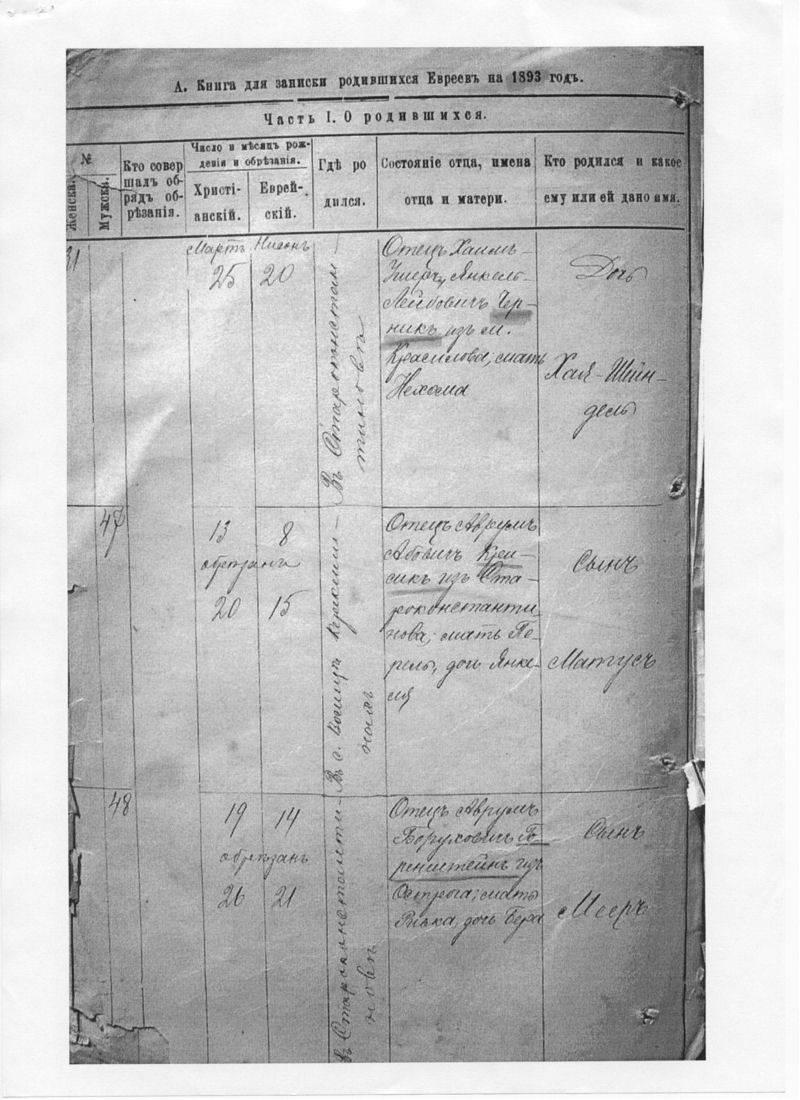 А. Книга для записки родившихся Евреевъ на 1893 годъ.
Часть I. О родившихся.
№
Женска.
Мужска.
Кто совер
шалъ об-
рядъ об-
рѣзанія.
Число и мѣсяцъ рож-
денія и обрѣзанія.
Христі-
анскій.
Еврей-
скій.
Гдѣ ро
дился.
Состояніе отца, имена
отца и матери.
Кто родился и какое
ему или ей дано имя.
31
Мартъ
25
Нисонъ
20
Въ Староконстан-
тиновѣ
Отецъ Хаимъ-
Янкель-
Лейбовичъ Чер-
никъ изъ м.
Красилова; мать
Нехама
Дочь
Хая-Шейн-
дель
47
13 8
обрѣзанъ
20 15
Въ с.
Отецъ Аврумъ
Абовичъ
изъ Ста-
роконстанти
нова; мать Пе-
рель, дочь Янке-
ля
Сынъ
Матусъ
48
19 14
обрѣзанъ
26 21
въ Староконстанти-
новѣ
Отецъ Аврумъ
Боруховичъ Бе-
ренштейнъ изъ
Острога; мать
Ривка, дочь Бера
Сынъ
Мееръ